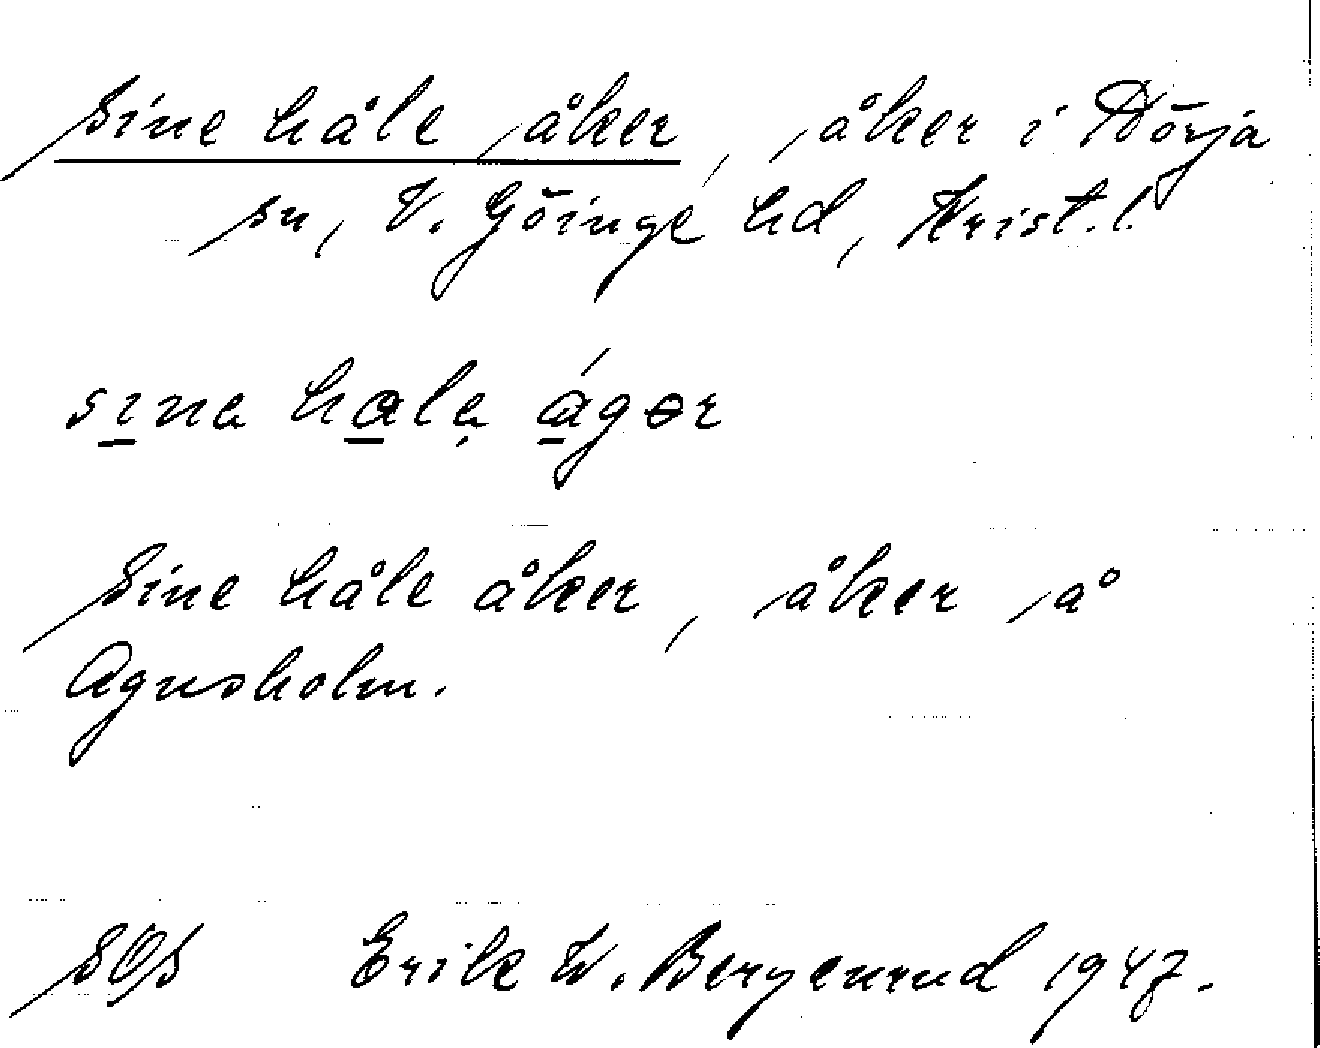 Sine håle åker, åker i Nörja
sn, V. Göinge hd, Krist. l.
sina hala ágər
Sine håle åker, åker å
Agnsholm.
SOS Erik W. Bergenrud 1947.